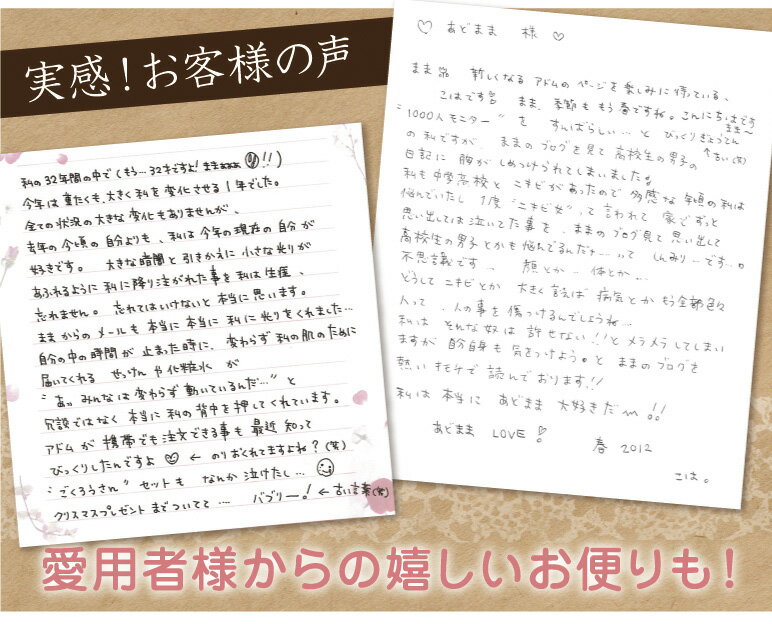 実感！お客様の声
私の32年間の中で（もう…32才ですよ！ままぁぁぁ!!）
今年は重たくも、大きく私を変化させる1年でした。
全ての状況の大きな変化もありませんが、
去年の今頃の自分よりも、私は今年の現在の自分が
好きです。 大きな暗闇と引きかえに小さな光りが
あふれるように私に降り注がれた事を私は生涯、
忘れません。 忘れてはいけないと本当に思います。
ままからのメールも本当に本当に私に光りをくれました…
自分の中の時間が止まった時に、変わらず私の肌のために
届いてくれる せっけんや化粧水が
“あ。みんなは変わらず動いているんだ…”と
冗談ではなく本当に私の背中を押してくれています。
アドムが携帯でも注文できる事も最近知って
びっくりしたんですよ ← のりおくれてますよね？（笑）
“ごくろうさん”セットも なんか泣けたし…
クリスマスプレゼントまでついてて… バブリー！←古い言葉（笑）
♡ あどまま 様 ♡
まま 新しくなるアドムのページを楽しみに待っている、
こはです まま、季節ももう春ですね。こんにちはです
まま〜
“1000人モニター”を すんばらしい…と びっくりぎょうてん
の私ですが、ままのブログを見て高校生の男子の ↑るい（笑）
日記に 胸がしめつけられてしまいました。
私も中学高校とニキビがあったので多感な年頃の私は
悩んでいたし 1度“ニキビ女”って言われて家でずっと
思い出しては泣いてた事を、ままのブログ見て思い出して
高校生の男子とかも悩んでるんだナーって しんみりーです…。
不思議です、 顔とか… 体とか…
どうして ニキビとか 大きく説けば 病気とかもう全部色々
人って、人の事を傷つけるんでしょうね…
私は そんな奴は 許せない!!とメラメラしてしまい
ますが 自分自身も気をつけよう。と ままのブログを
熱いキモチで 読んでおります!!
私は本当に あどまま 大好きだ〜!!
あどまま LOVE！ 春 2012
こは。
愛用者様からの嬉しいお便りも！